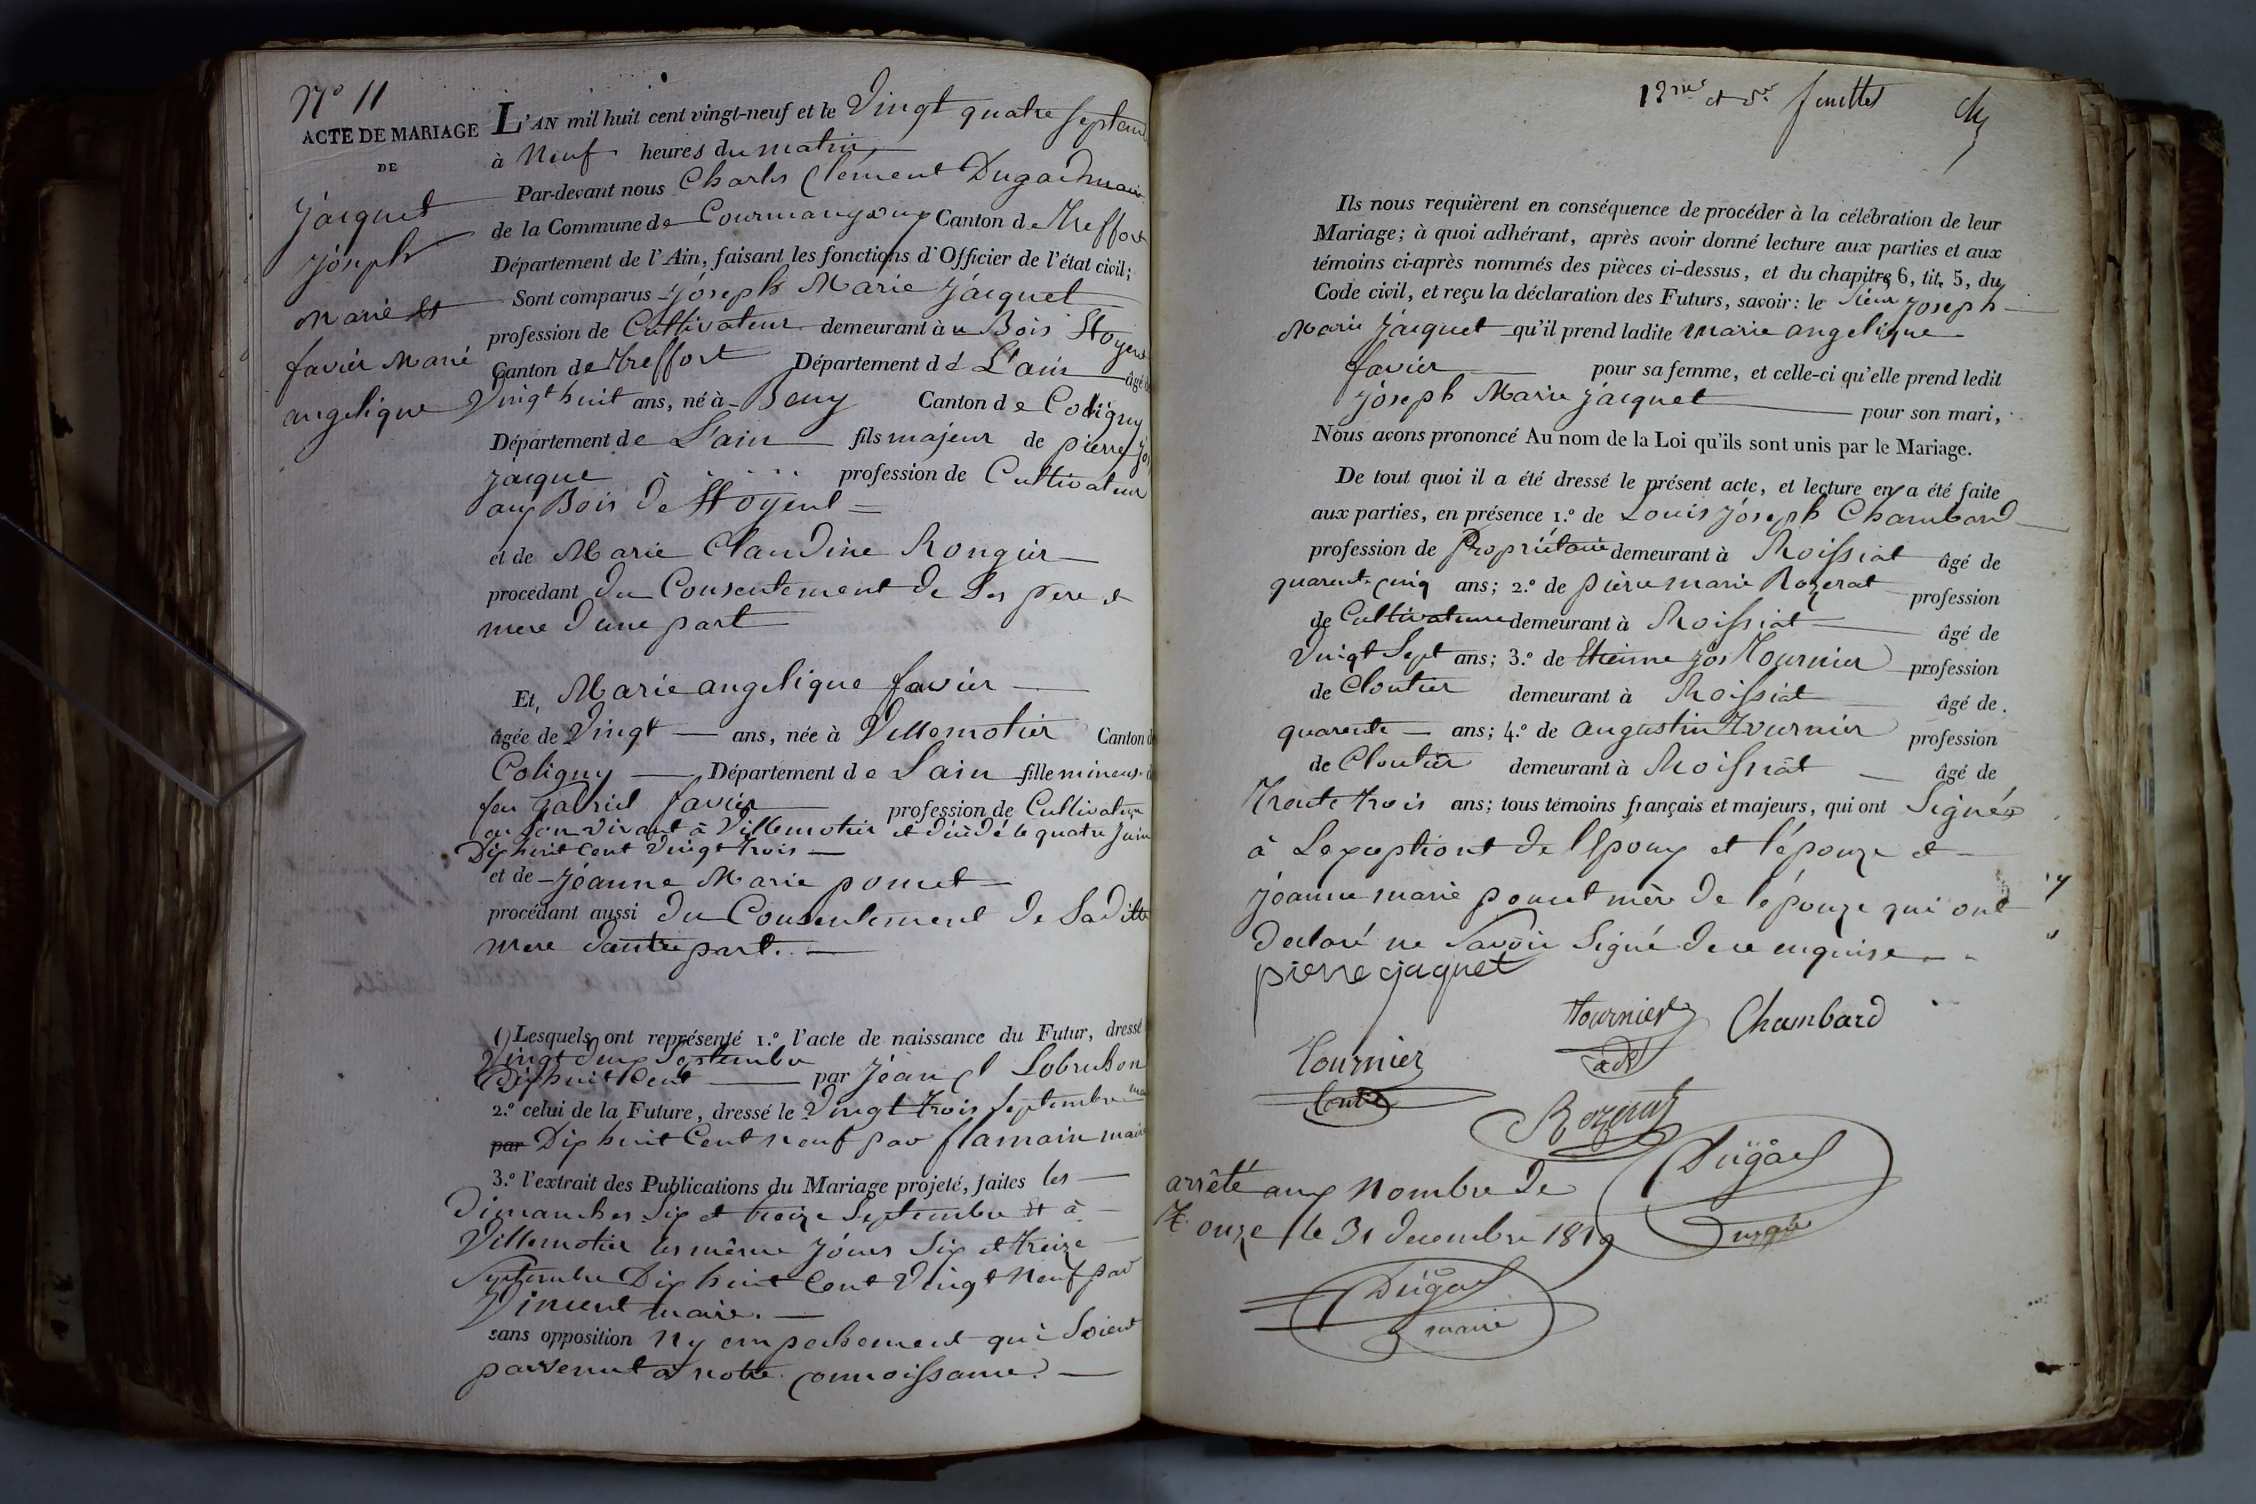 N° 11
ACTE DE MARIAGE
DE
Jacquet
Joseph
Marie et
favier Marie
angelique
L'AN mil huit cent vingt-neuf et le Vingt quatre septem
à Neuf heures du matin
Par-devant nous Charles Clément Dugad maire
de la Commune de Courmangoux Canton de Treffort
Département de l'Ain, faisant les fonctions d'Officier de l'état civil;
Sont comparus Joseph Marie Jacquet
profession de Cultivateur demeurant à u Bois
Canton de treffort Département de L'ain âgé de
Vingt huit ans, né à Beny Canton de Coligny
Département de L'ain fils majeur de pierre Jos
Jacque profession de Cultivateur
aux Bois de
et de Marie Claudine Rongier
procédant du Consentement de Ses pere et
mere d'une part
Et, Marie angelique favier
âgée de Vingt ans, née à Villemotier Canton de
Coligny Département de Lain fille mineure de
feu Gabriel favier profession de Cultivateur
en Son vivant à Villemotier et décédé le quatre Juin
Dix huit Cent Vingt trois
et de Jéanne Marie pomet
procédant aussi du Consentement de Saditte
mere dautre part.
() Lesquels ont représenté 1.° l'acte de naissance du Futur, dressé
Vingt deux Septembre
Dix huit Cent par Jean
2.° celui de la Future, dressé le Vingt trois Septembre
par Dix huit Cent neuf par flamain maire
3.° l'extrait des Publications du Mariage projeté, faites les
Dimanches Six et treize Septembre et à
Villemotier les même Jours Six et treize
Septembre Dix huit Cent Vingt Neuf par
Vincent maire.
sans opposition Ny empechement qui Soient
parvenut à notre connoissance.
12me et der feuillet
Ils nous requièrent en conséquence de procéder à la célébration de leur
Mariage; à quoi adhérant, après avoir donné lecture aux parties et aux
témoins ci-après nommés des pièces ci-dessus, et du chapitre 6, tit. 5, du
Code civil, et reçu la déclaration des Futurs, savoir: le Sieur Joseph
Marie Jacquet qu'il prend ladite Marie angelique
favier pour sa femme, et celle-ci qu'elle prend ledit
Joseph Marie Jacquet pour son mari,
Nous avons prononcé Au nom de la Loi qu'ils sont unis par le Mariage.
De tout quoi il a été dressé le présent acte, et lecture en a été faite
aux parties, en présence 1.° de Louis Joseph Chambard
profession de Propriétaire demeurant à Roissiat âgé de
quarente cinq ans; 2.° de pierre marie Rozerat profession
de Cultivateur demeurant à Roissiat âgé de
Vingt Sept ans; 3.° de Etienne Jos Tournier profession
de Cloutier demeurant à Roissiat âgé de
quarente ans; 4.° de augustin Tournier profession
de Cloutier demeurant à Roissiat âgé de
Trente trois ans; tous témoins français et majeurs, qui ont Signés
à Lexceptiont de l'Epoux et l'épouze et
Jéanne marie pomet mère de lépouze qui ont
déclaré ne Savoir Signé de ce enquise
pierre jaquet
Tournier Chambard
Tournier
Rozerat
Dugad
maire
arrêté aux Nombre de
onze le 31 decembre 1829
Dugad
maire